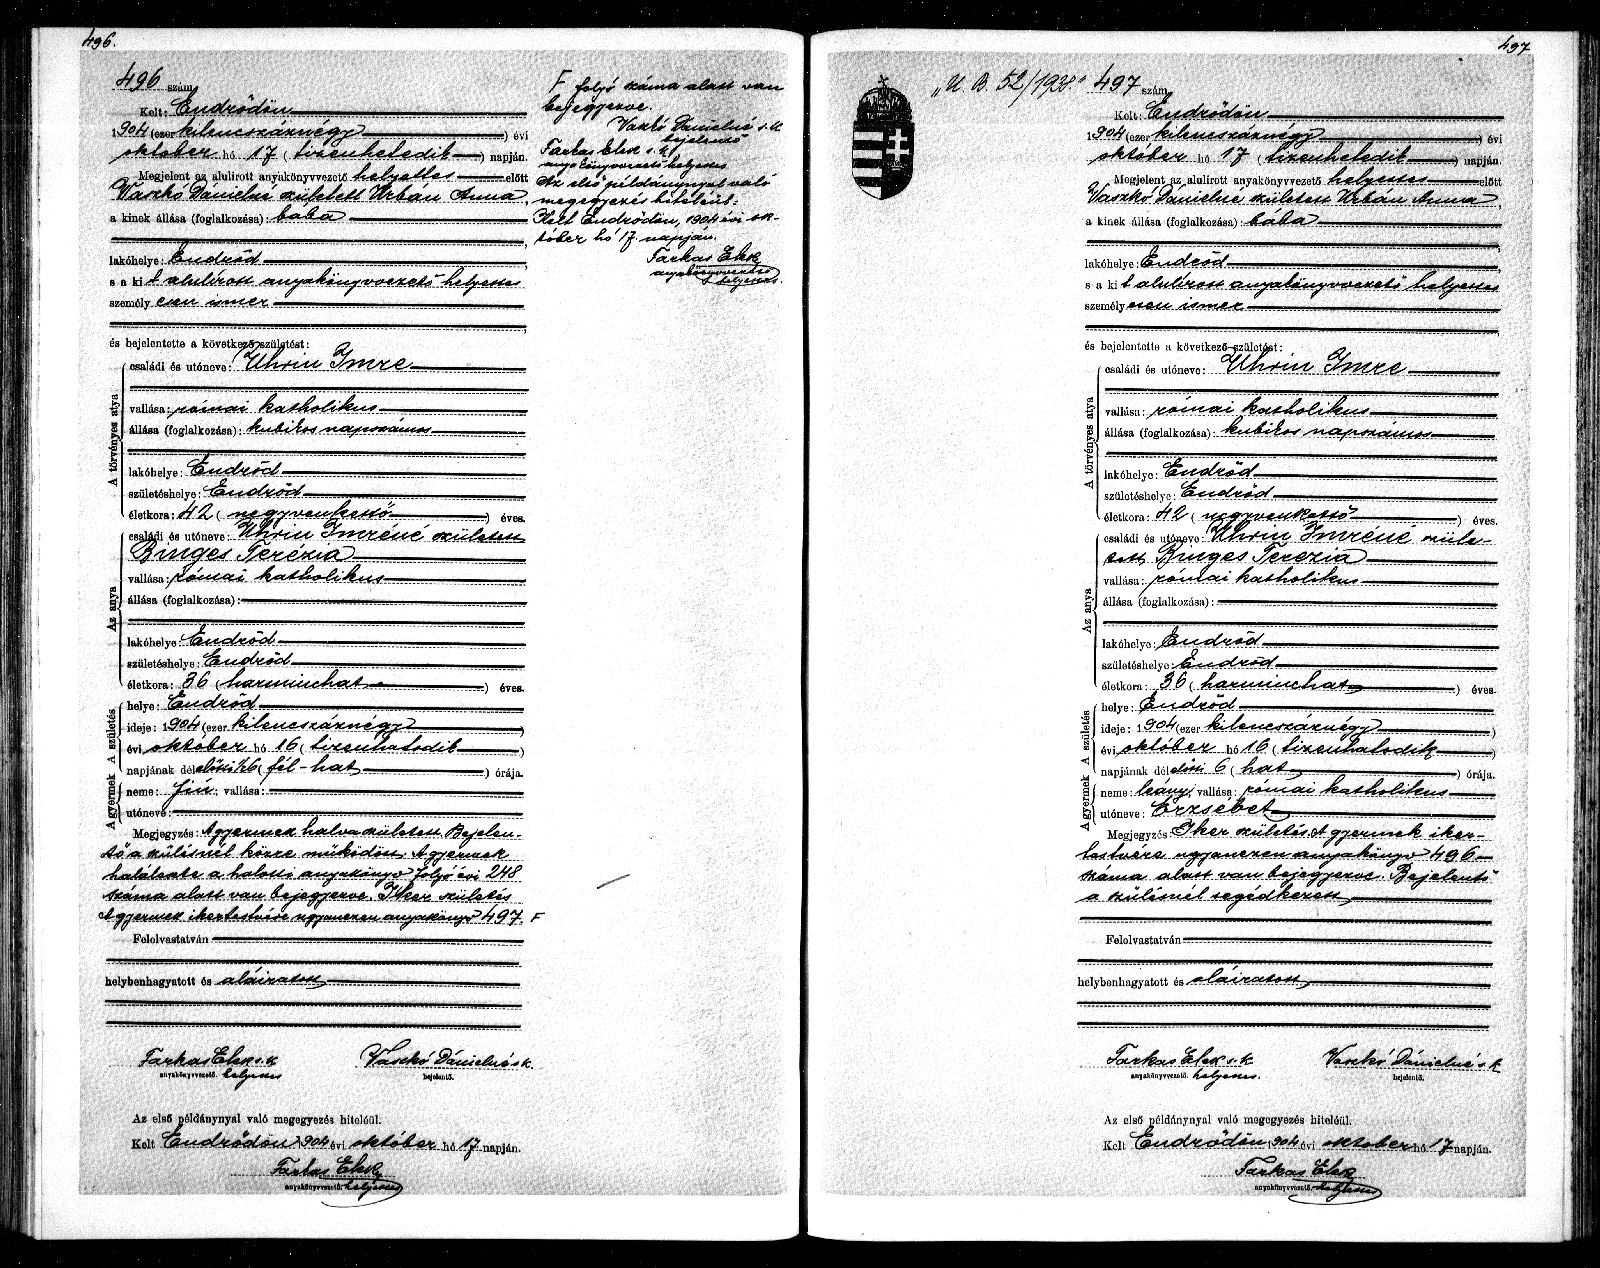 496.
496 szám
Kelt: Endrődön
1904 (ezerkilencszáznégy) évi
oktober hó 17 (tizenhetedik) napján.
Megjelent az alulirott anyakönyvvezető helyettes előtt
Vaszkó Dánielné született Urbán Anna,
a kinek állása (foglalkozása): bába
lakóhelye: Endrőd
s a kit alulírott anyakönyvvezető helyettes
személyesen ismer
és bejelentette a következő születést:
A törvényes atya
családi és utóneve: Uhrin Imre
vallása: római katholikus
állása (foglalkozása): kubikos napszámos
lakóhelye: Endrőd
születéshelye: Endrőd
életkora: 42 (negyvenkettő) éves.
Az anya
családi és utóneve: Uhrin Imréné született
Binges Terézia
vallása: római katholikus
állása (foglalkozása):
lakóhelye: Endrőd
születéshelye: Endrőd
életkora: 36 (harminchat) éves.
A születés
helye: Endrőd
ideje: 1904 (ezerkilencszáznégy)
évi október hó 16 (tizenhatodik)
napjának délelőtti 1/2 6 (fél-hat) órája.
A gyermek
neme: fiú; vallása:
utóneve:
Megjegyzés: A gyermek halva született. Bejelen-
tő a szülésnél közre működött. A gyermek
halálesete a halotti anyakönyv folyó évi 248
száma alatt van bejegyezve. Iker születés
A gyermek ikertestvére ugyanezen anyakönyv 497. F
Felolvastatván
helybenhagyatott és aláiratott
Farkas Elek s. k. Vaszkó Dánielné s. k.
anyakönyvvezető. helyettes bejelentő.
Az első példánynyal való megegyezés hiteléül.
Kelt Endrődön, 1904 évi október hó 17 napján.
Farkas Elek
anyakönyvvezető. helyettes
F folyó száma alatt van
bejegyezve.
Vaszkó Dánielné s. k.
bejelentő
Farkas Elek s. k.
anyakönyvvezető helyettes
Az első példánynyal való
megegyezés hiteléül:
Kelt Endrődön, 1904 évi ok-
tóber hó 17 napján.
Farkas Elek
anyakönyvvezető
helyettes.
497
"U. B. 52/1938" 497 szám
Kelt: Endrődön
1904 (ezerkilencszáznégy) évi
október hó 17 (tizenhetedik) napján.
Megjelent az alulirott anyakönyvvezető helyettes előtt
Vaszkó Dánielné született Urbán Anna,
a kinek állása (foglalkozása): bába
lakóhelye: Endrőd
s a kit alulírott anyakönyvvezető helyettes
személyesen ismer
és bejelentette a következő születést:
A törvényes atya
családi és utóneve: Uhrin Imre
vallása: római katholikus
állása (foglalkozása): kubikos napszámos
lakóhelye: Endrőd
születéshelye: Endrőd
életkora: 42 (negyvenkettő) éves.
Az anya
családi és utóneve: Uhrin Imréné szüle-
tett Binges Terézia
vallása: római katholikus
állása (foglalkozása):
lakóhelye: Endrőd
születéshelye: Endrőd
életkora: 36 (harminchat) éves.
A születés
helye: Endrőd
ideje: 1904 (ezerkilencszáznégy)
évi október hó 16 (tizenhatodik)
napjának délelőtti 6 (hat) órája.
A gyermek
neme: leány; vallása: római katholikus
utóneve: Erzsébet
Megjegyzés: Iker születés. A gyermek iker-
testvére ugyanezen anyakönyv 496
száma alatt van bejegyezve. Bejelentő
a szülésnél segédkezett
Felolvastatván
helybenhagyatott és aláiratott
Farkas Elek s. k. Vaszkó Dánielné s. k.
anyakönyvvezető. helyettes. bejelentő.
Az első példánynyal való megegyezés hiteléül.
Kelt Endrődön, 1904 évi oktober hó 17 napján.
Farkas Elek
anyakönyvvezető. helyettes